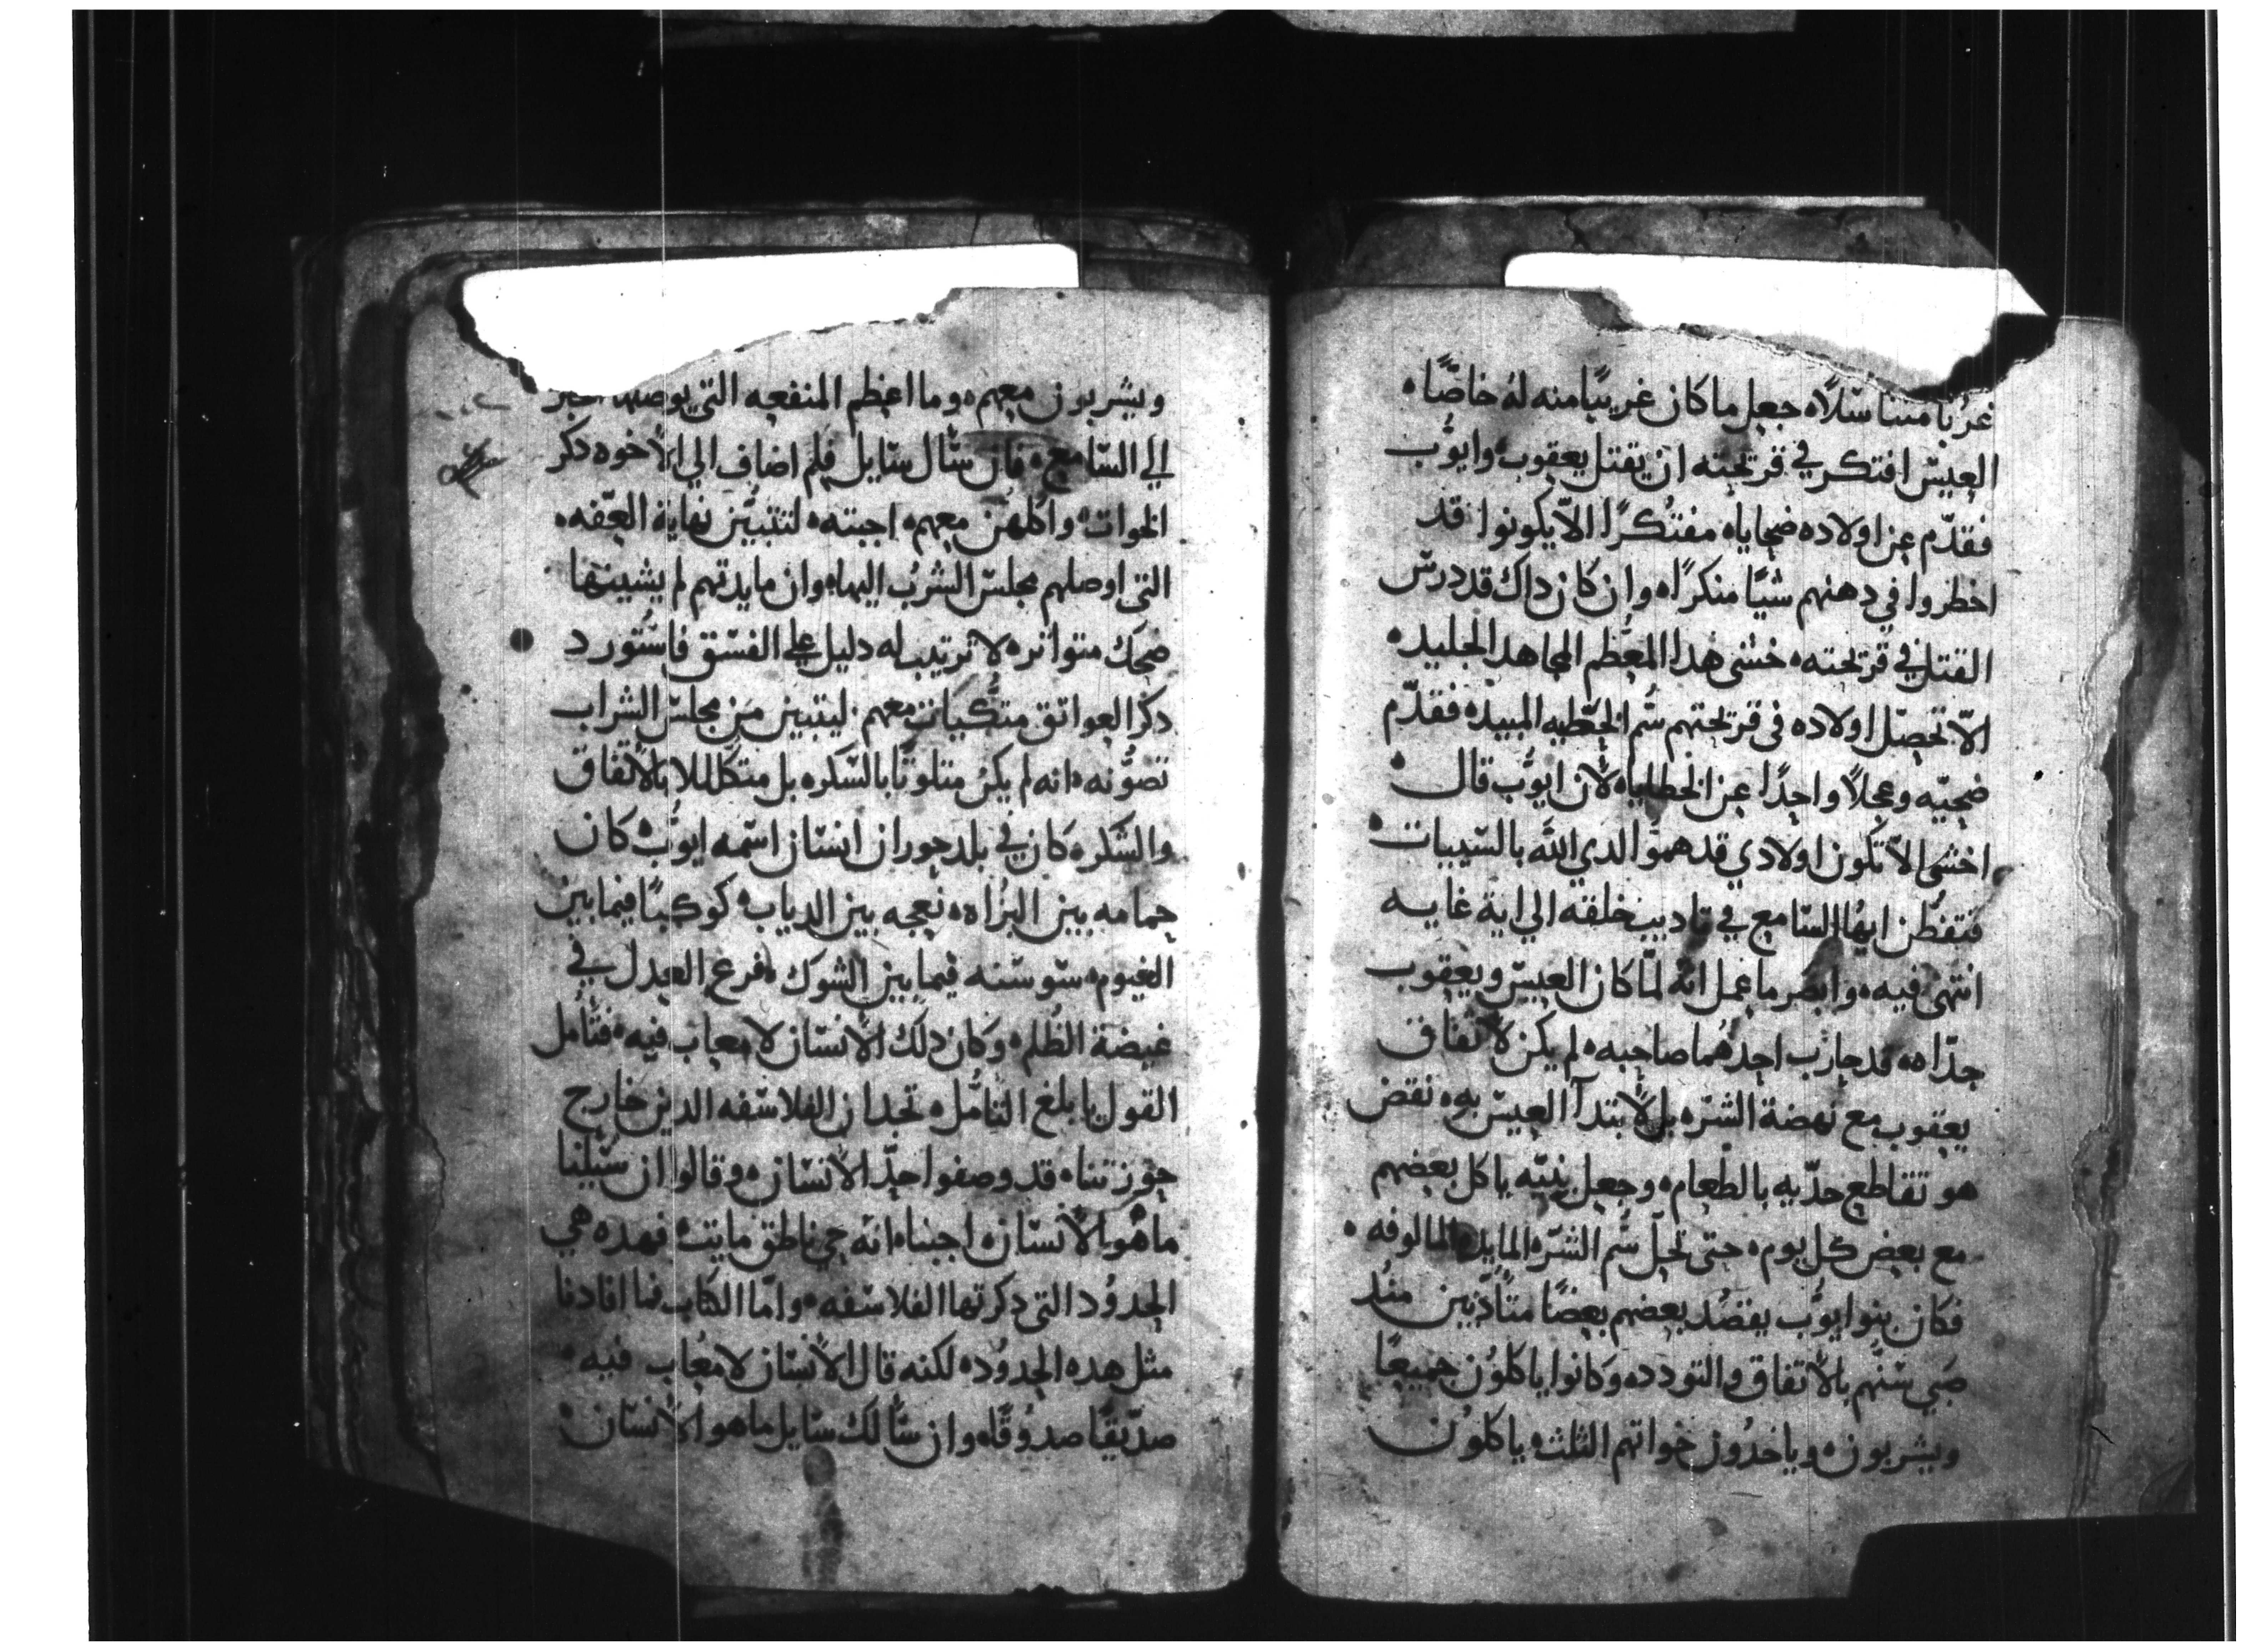 غربا متناسلاً ه جعل ما كان غريبًا منه له خاصًا ه
العيس افتكر في قريحته ان يقتل يعقوب ه وايوُّب
فقدّم عن اولاده ضحاياه مفتكرًا الاّ يكونوا قد
اخطروا في دهنهم شيًا منكرًا ه وان كان داك قد درس
القتل في قريحته ه خشى هدا المعُّظم المجاهد الجليد ه
الاّ تحصل اولاده فى قريحتهم سُّم الخطيه المبيد ه فقدّم
ضحيّه وعجلاً واحدًا عن الخطايا ه لان ايوُّب قال ه
اخشى الاّ تكون اولادي قد همّوا لدي الله بالسّييات ه
فتفطن ايهُّا السّامع في تاديب خلقه الي اية غايه
انتهى فيه ه وابصر ما عمل انّه لمّا كان العيسّ ويعقوب
جدّاه ه قد حارب احدهُما صاحبه ه لم يكن لاتفاق
يعقوب مع نهضة الشرّه بل لابتدآ العيسّ به ه نقض
هو تقاطع جدّيه بالطعام ه وجعل بنيّه ياكل بعضهم
مع بعض كل يوم ه حتى تحل سّم الشرّه المايله المالوفه ه
فكان بنوا ايوُّب يفضُد بعضهم بعضًا متاًدّبين منُد
صَبي سّنّهم بالاتفاق والتودد ه وكانوا ياكلوُن جميعًا
ويشربون ه وياخدُون خواتهم الثلث ه ياكلوُن
ويشربون معهم ه وما اعظم المنفعه التي يوصلها الخبر
الي السّامع ه فان سّال سّايل فلم اضاف الي الاخوه دكر
الخوات ه واكلهُن معهم ه اجبته ه لتتبيَّن نهاية العّفه ه
التي اوصلهم مجلسّ الشربُ اليها ه وان مايدتهم لم يشينها
ضحك متواتر ه لا ترتيب له دليل علي الفسّق فاسُّتورد
دكر العواتق متكُّيات معهم ه ليتبين من مجلسّ الشراب
تصوُّنه ه انه لم يكن متلوثًا بالسّكره بل متكللا بالاتفاق
والسّكره كان في بلد حوران انسّان اسّمه ايوُّب ه كان
حمامه بين البزُاه ه نعجه بين الدياب ه كوكبًا فيما بين
الغيوم ه سّوسّنه فيما بين الشوك ه فرع العدل في
غيضة الظُلم ه وكان دلك الانسّان لا معاب فيه ه فتامل
القول يا بلغ التامُّل ه تجد ان الفلاسّفه الدين خارج
حوزتنا ه قد وصفوا حدّ الانسّان ه وقالوا ان سُّيلنا
ما هُو الانسّان ه اجبنا ه انّه حي ناطق مايت ه فهده هي
الحدوُد التي دكرتها الفلاسّفه ه وامّا الكتاب فما افادنا
مثل هده الحدوُد ه لكنه قال الانسّان لا معُاب فيه ه
صدّيقًا صدوُقًا ه وان سّالك سّايل ما هو الانسّان ه